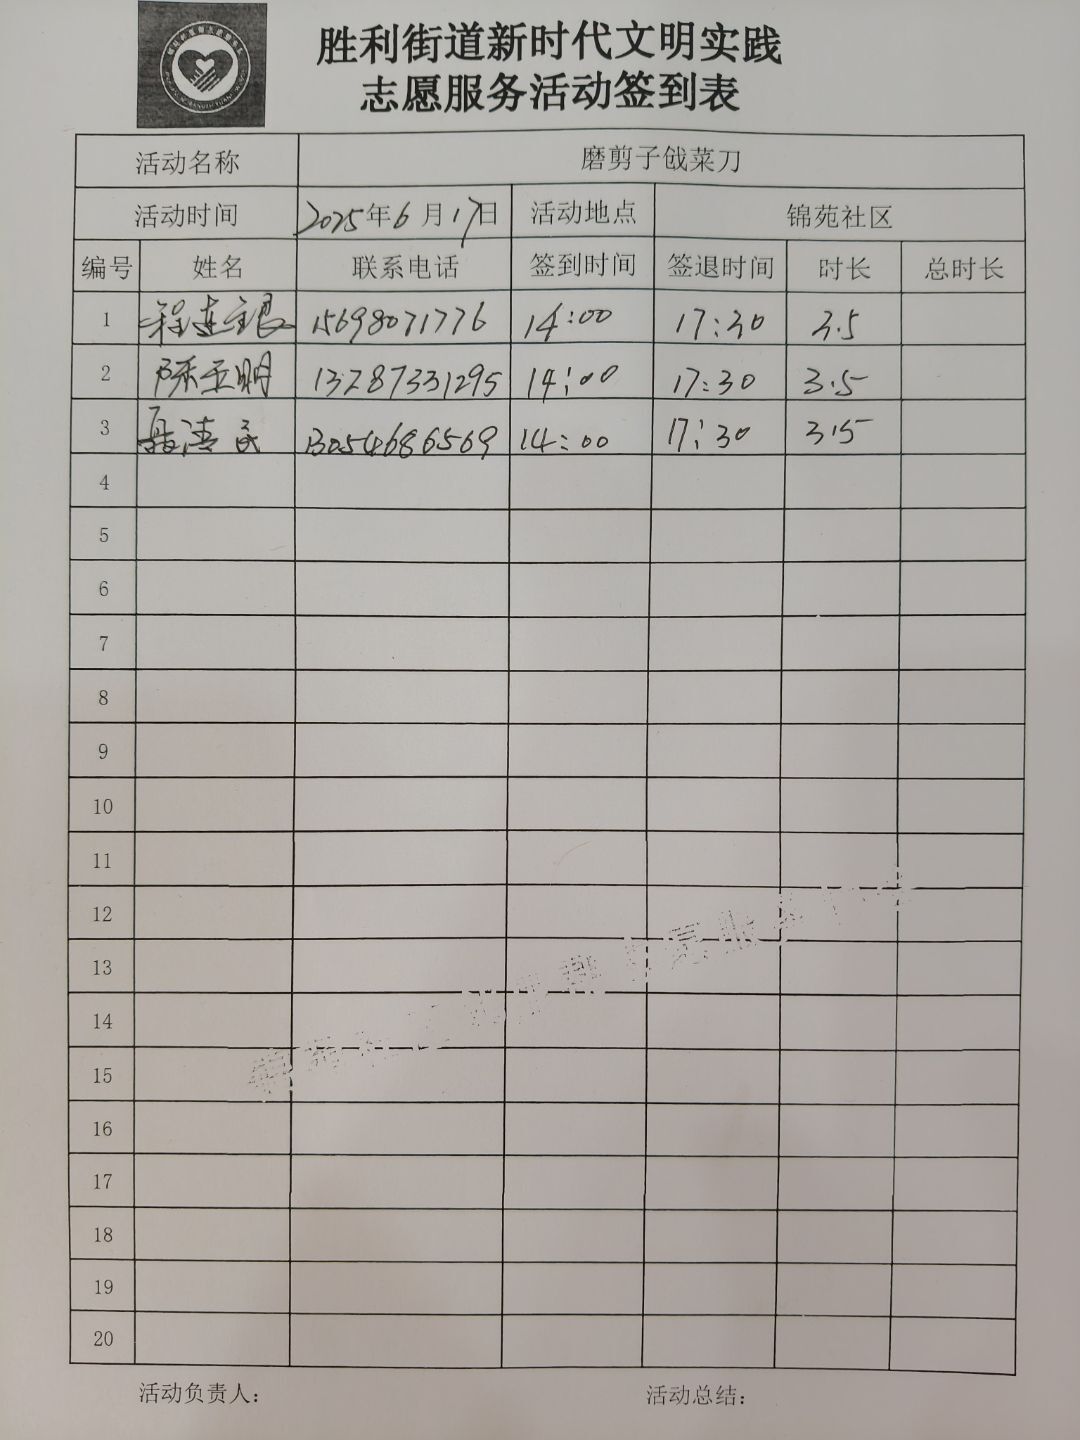 胜利街道新时代文明实践
志愿服务活动签到表
活动名称 磨剪子戗菜刀
活动时间 2025年6月17日 活动地点 锦苑社区
编号 姓名 联系电话 签到时间 签退时间 时长 总时长
1 程连银 15698071776 14:00 17:30 3.5
2 陈玉明 13287331295 14:00 17:30 3.5
3 聂清民 13054686569 14:00 17:30 3.5
4
5
6
7
8
9
10
11
12
13
14
15
16
17
18
19
20
活动负责人: 活动总结: